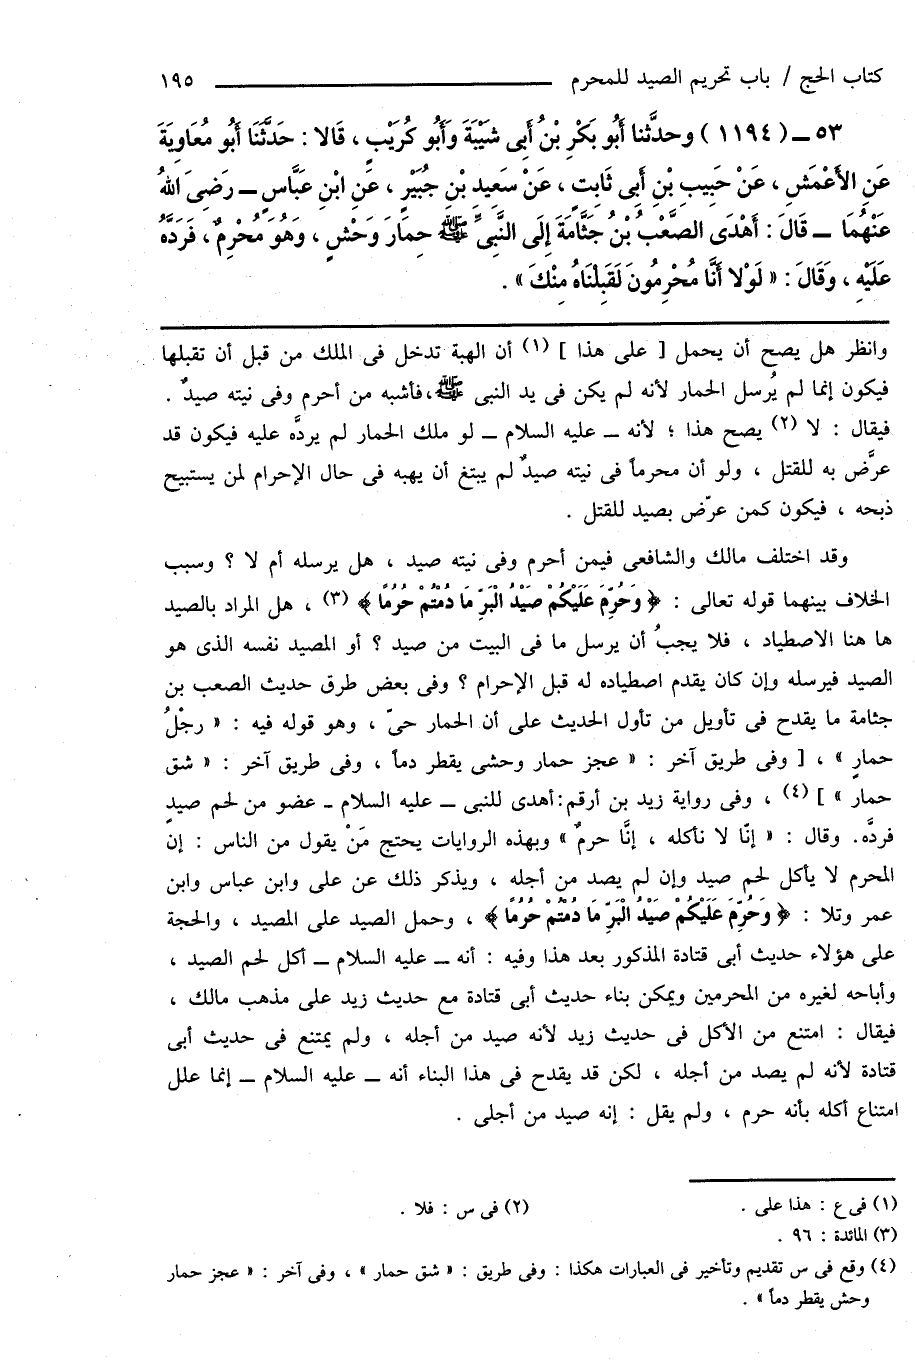 كتاب الحج / باب تحريم الصيد للمحرم ــــــــــ ١٩٥
٥٣ ــ ( ١١٩٤ ) وحدَّثنا أَبُو بَكْرِ بْنُ أَبِى شَيْبَةَ وَأَبُو كُرَيْبٍ ، قَالا : حَدَّثَنَا أَبُو مُعَاوِيَةَ
عَنِ الأَعْمَشِ ، عَنْ حَبِيبِ بْنِ أَبِى ثَابِتٍ ، عَنْ سَعِيدِ بْنِ جُبَيْرٍ ، عَنِ ابْنِ عَبَّاسٍ ــ رَضِىَ اللهُ
عَنْهُمَا ــ قَالَ : أَهْدَى الصَّعْبُ بْنُ جَثَّامَةَ إِلَى النَّبِىِّ ﷺ حِمَارَ وَحْشٍ ، وَهُوَ مُحْرِمٌ ، فَرَدَّهُ
عَلَيْهِ ، وَقَالَ : « لَوْلا أَنَّا مُحْرِمُونَ لَقَبِلْنَاهُ مِنْكَ » .
وانظر هل يصح أن يحمل [ على هذا ] (١) أن الهبة تدخل فى الملك من قبل أن تقبلها
فيكون إنما لم يُرسل الحمار لأنه لم يكن فى يد النبى ﷺ،فأشبه من أحرم وفى نيته صيدٌ .
فيقال : لا (٢) يصح هذا ؛ لأنه ــ عليه السلام ــ لو ملك الحمار لم يردَّه عليه فيكون قد
عرَّض به للقتل ، ولو أن محرماً فى نيته صيدٌ لم يبتغ أن يهبه فى حال الإحرام لمن يستبيح
ذبحه ، فيكون كمن عرّض بصيد للقتل .
وقد اختلف مالك والشافعى فيمن أحرم وفى نيته صيد ، هل يرسله أم لا ؟ وسبب
الخلاف بينهما قوله تعالى : ﴿ وَحُرِّمَ عَلَيْكُمْ صَيْدُ الْبَرِّ مَا دُمْتُمْ حُرُمًا ﴾ (٣) ، هل المراد بالصيد
ها هنا الاصطياد ، فلا يجبُ أن يرسل ما فى البيت من صيد ؟ أو المصيد نفسه الذى هو
الصيد فيرسله وإن كان يقدم اصطياده له قبل الإحرام ؟ وفى بعض طرق حديث الصعب بن
جثامة ما يقدح فى تأويل من تأول الحديث على أن الحمار حىّ ، وهو قوله فيه : « رجْلُ
حمارٍ » ، [ وفى طريق آخر : « عجز حمار وحشى يقطر دماً ، وفى طريق آخر : « شق
حمار » ] (٤) ، وفى رواية زيد بن أرقم:أهدى للنبى ــ عليه السلام ـ عضو من لحم صيدٍ
فردَّه. وقال : « إنّا لا نأكله ، إنَّا حرمٌ » وبهذه الروايات يحتج مَنْ يقول من الناس : إن
المحرم لا يأكل لحم صيد وإن لم يصد من أجله ، ويذكر ذلك عن على وابن عباس وابن
عمر وتلا : ﴿ وَحُرِّمَ عَلَيْكُمْ صَيْدُ الْبَرِّ مَا دُمْتُمْ حُرُمًا ﴾ ، وحمل الصيد على المصيد ، والحجة
على هؤلاء حديث أبى قتادة المذكور بعد هذا وفيه : أنه ــ عليه السلام ــ أكل لحم الصيد ،
وأباحه لغيره من المحرمين ويمكن بناء حديث أبى قتادة مع حديث زيد على مذهب مالك ،
فيقال : امتنع من الأكل فى حديث زيد لأنه صيد من أجله ، ولم يمتنع فى حديث أبى
قتادة لأنه لم يصد من أجله ، لكن قد يقدح فى هذا البناء أنه ــ عليه السلام ــ إنما علل
امتناع أكله بأنه حرم ، ولم يقل : إنه صيد من أجلى .
(١) فى ع : هذا على . (٢) فى س : فلا .
(٣) المائدة : ٩٦ .
(٤) وقع فى س تقديم وتأخير فى العبارات هكذا : وفى طريق : « شق حمار » ، وفى آخر : « عجز حمار
وحش يقطر دماً » .